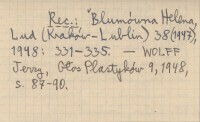 Rec.: "Blumówna Helena,
Lud (Kraków-Lublin) 38 (1947),
1948: 331-335. — WOLFF
Jerzy, Głos Plastyków 9, 1948,
s. 87-90.